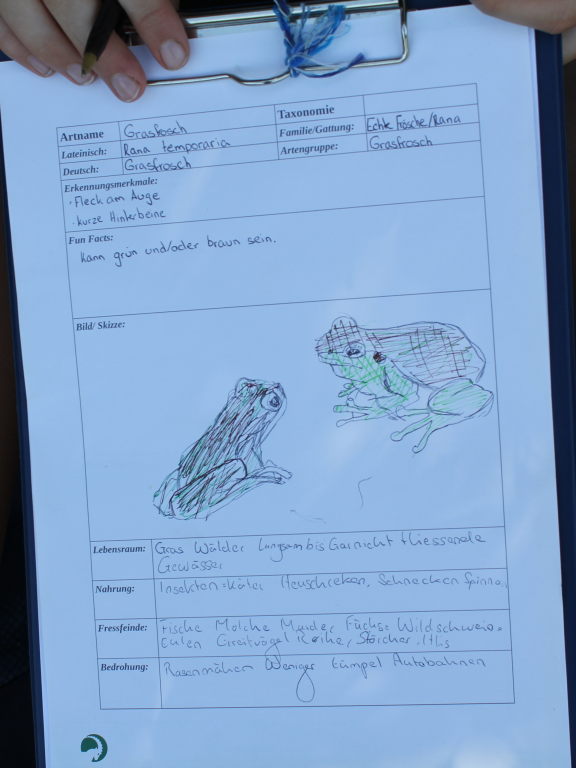 Artname Grasfrosch Taxonomie
Lateinisch: Rana temporaria Familie/Gattung: Echte Frösche/Rana
Deutsch: Grasfrosch Artengruppe: Grasfrosch
Erkennungsmerkmale:
· Fleck am Auge
· kurze Hinterbeine
Fun Facts:
Kann grün und/oder braun sein.
Bild/ Skizze:
Lebensraum: Gras Wälder Langsam bis Garnicht fliessende
Gewässer
Nahrung: Insekten Käfer Heuschrecken, Schnecken Spinne,
Fressfeinde: Fische Molche Marder Füchse Wildschweine
Eulen Greifvögel Reihe, Störche, Iltis
Bedrohung: Rasenmähen Weniger Tümpel Autobahnen